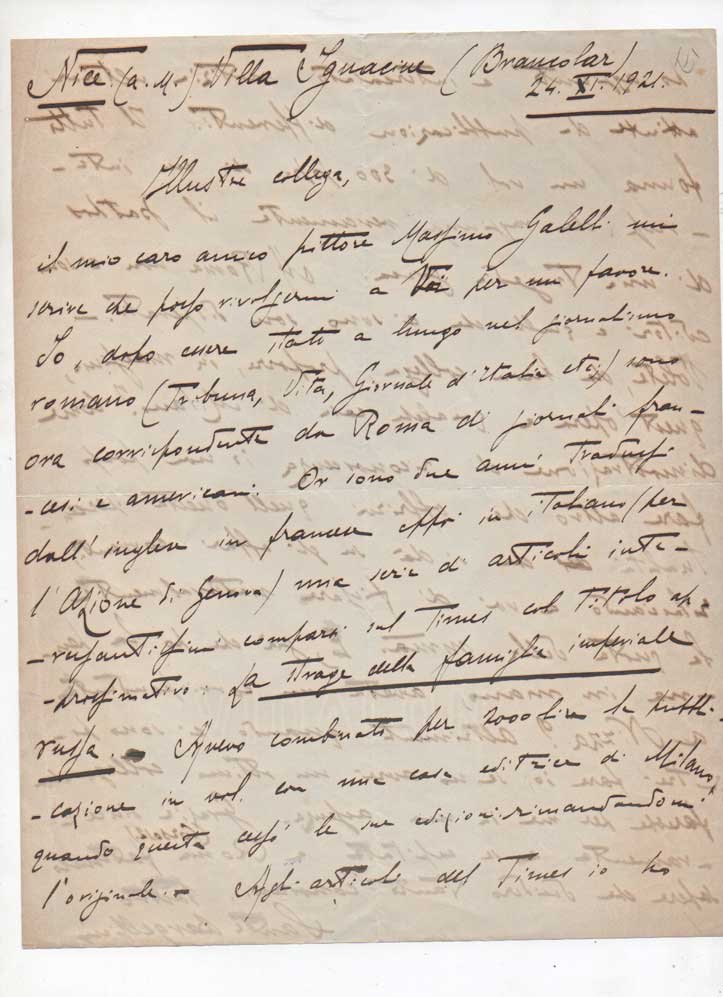 Nice (a. M.) Villa Ignacine (Brancolar)
24. XI. 1921.
Illustre collega,
il mio caro amico pittore Massimo Galelli mi
scrive che posso rivolgermi a Voi per un favore.
Io, dopo essere stato a lungo nel giornalismo
romano (Tribuna, Vita, Giornale d'Italia etc.) sono
ora corrispondente da Roma di giornali fran-
-cesi e americani. Or sono due anni tradussi
dall'inglese in francese eppoi in italiano (per
l'Azione di Genova) una serie di articoli inte-
-ressantissimi comparsi sul Times col titolo ap-
-prossimativo: La strage della famiglia imperiale
russa. - Avevo combinato per 2000 lire la pubbli-
-cazione in vol. con una casa editrice di Milano,
quando questa cessò le sue edizioni rimandandomi
l'originale. - Agli articoli del Times io ho